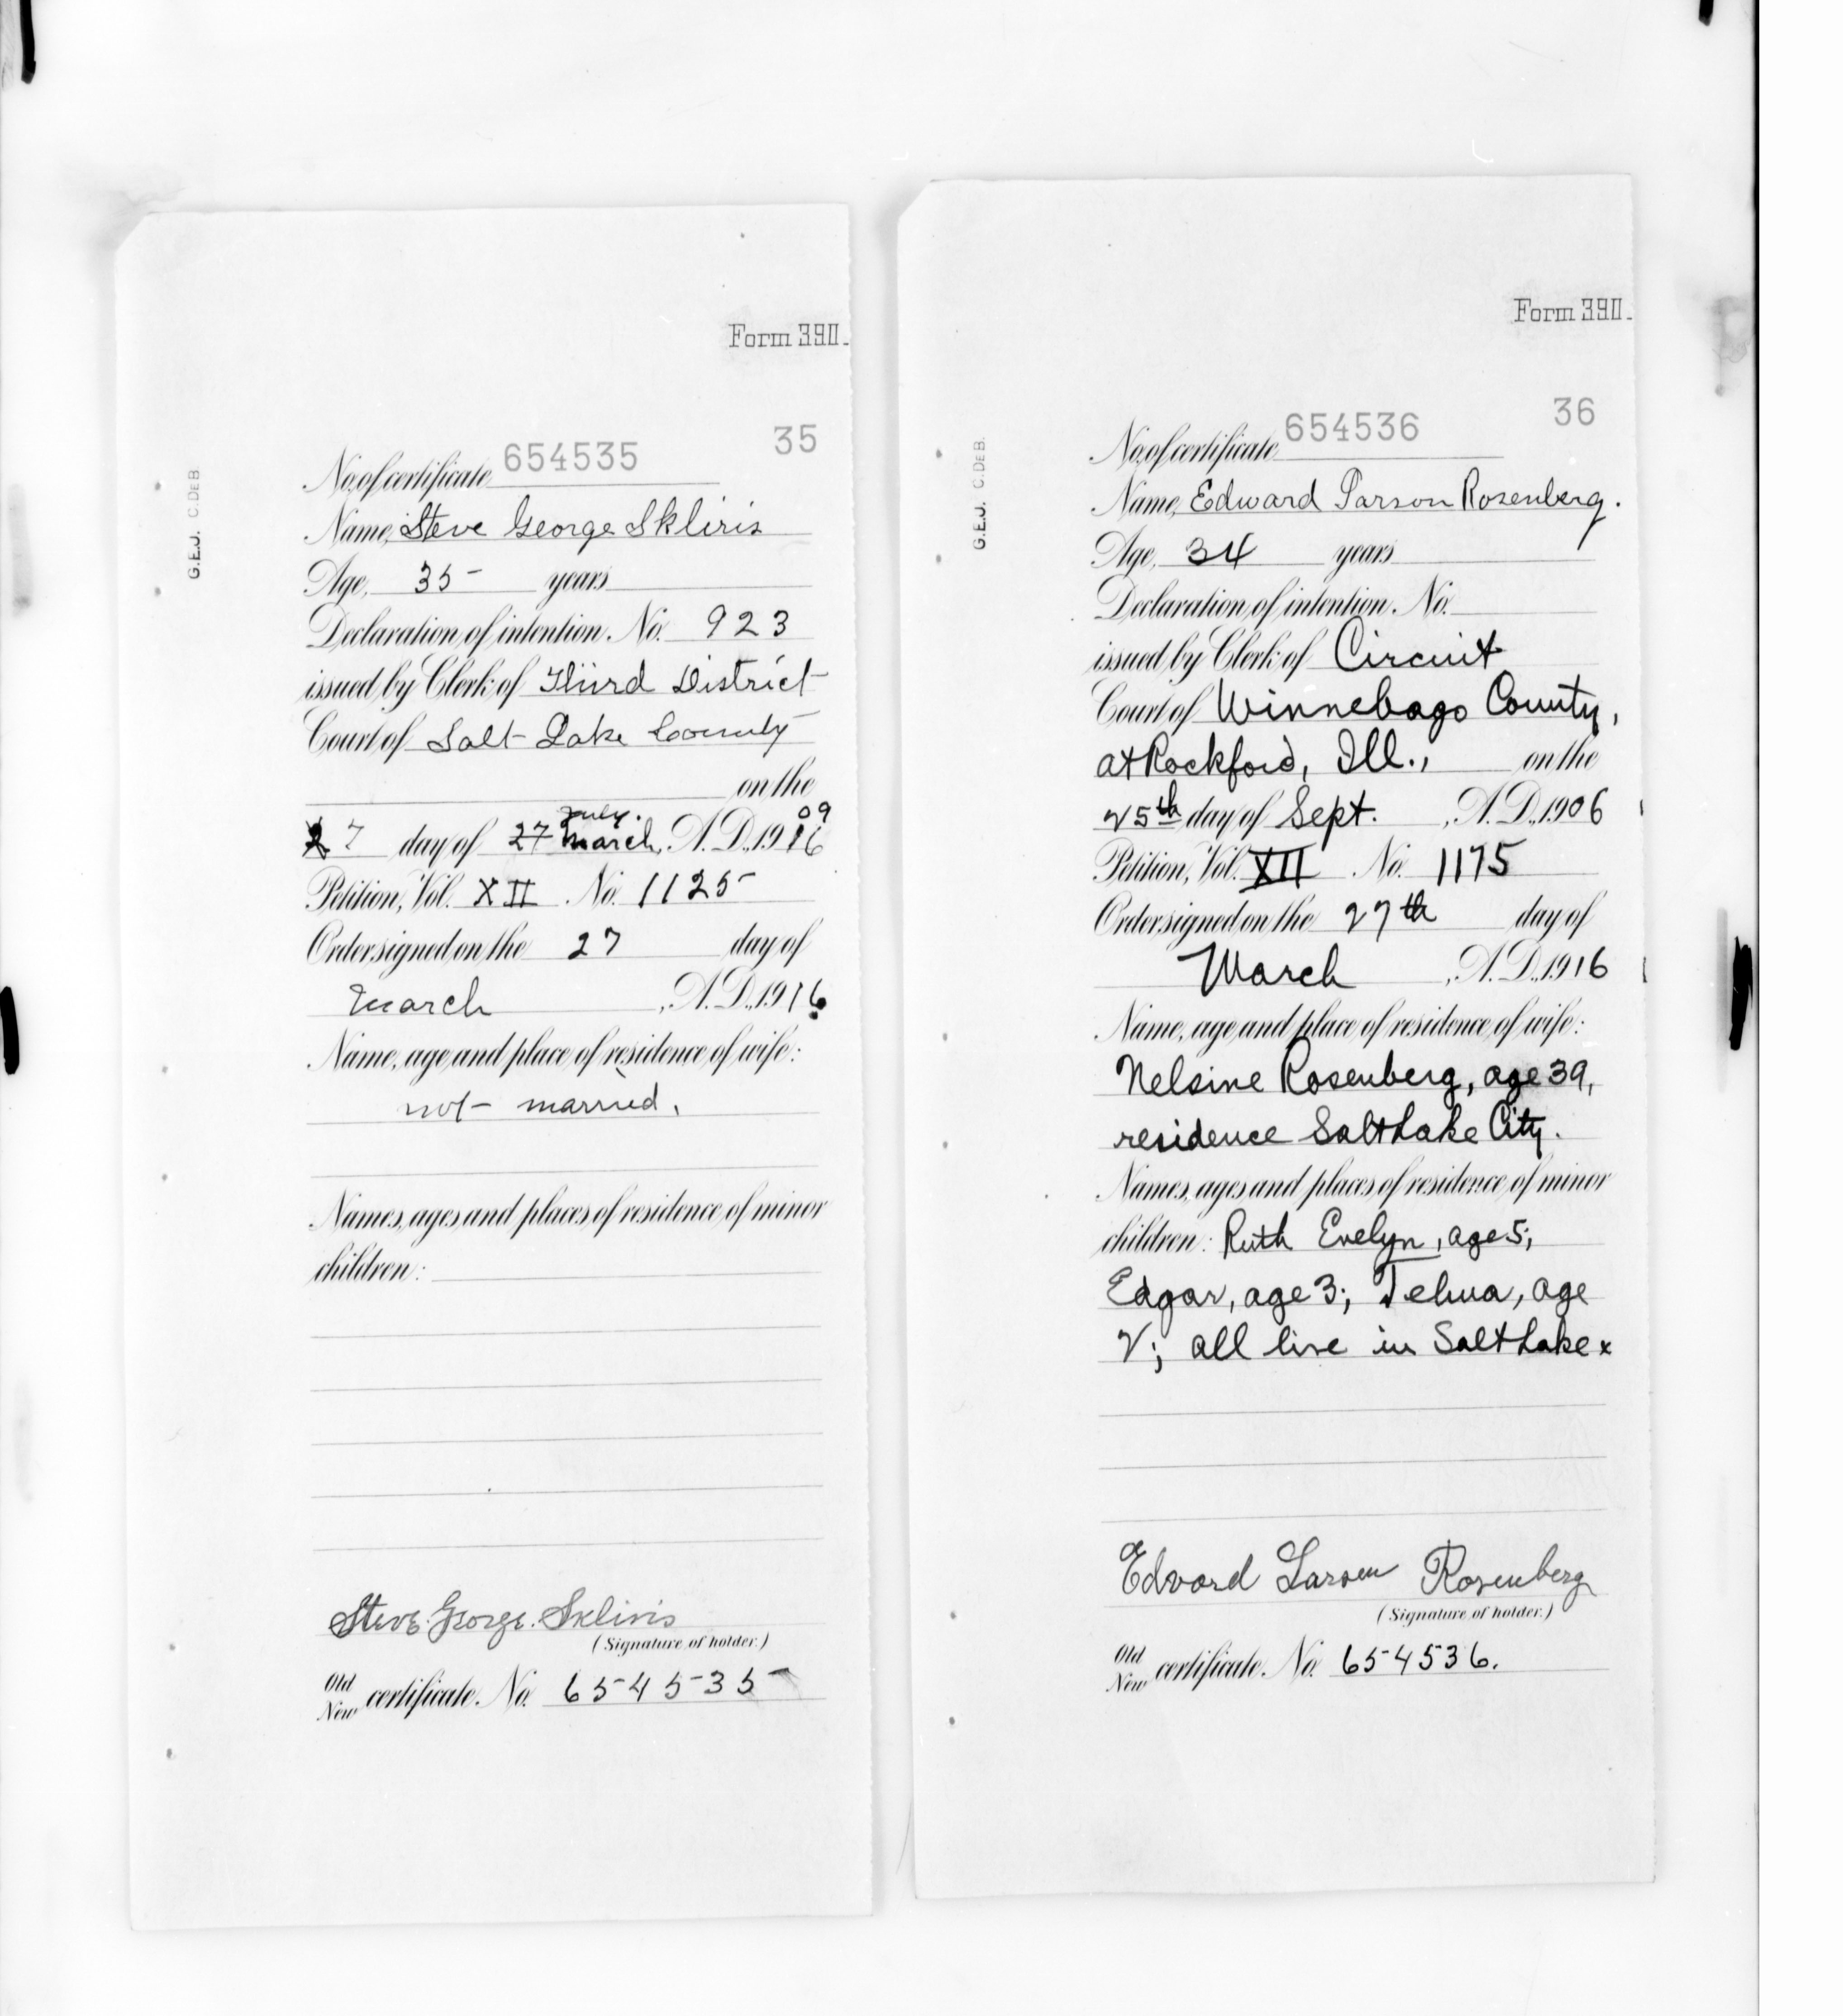 Form 390.
35
No. of certificate 654535
Name, Steve George Skliris
Age, 35 years
Declaration of intention, No. 923
issued by Clerk of Third District
Court of Salt Lake County
on the
July. 09
27 day of 27 March, A.D., 1916
Petition, Vol. XII No. 1125
Order signed on the 27 day of
March, A.D., 1916
Name, age and place of residence of wife:
not married.
Names, ages and places of residence of minor
children:
Steve George Skliris
(Signature of holder.)
Old
New certificate, No. 654535
G.E.J. C.DeB
Form 390.
36
No. of certificate 654536
Name, Edward Parson Rosenberg.
Age, 34 years
Declaration of intention, No.
issued by Clerk of Circuit
Court of Winnebago County,
at Rockford, Ill., on the
25th day of Sept., A.D., 1906
Petition, Vol. XII No. 1175
Order signed on the 27th day of
March, A.D., 1916
Name, age and place of residence of wife:
Nelsine Rosenberg, age 39,
residence Salt Lake City.
Names, ages and places of residence of minor
children: Ruth Evelyn, age 5;
Edgar, age 3; age
2; all live in Salt Lake x
Edvard Larsen Rosenberg
(Signature of holder.)
Old
New certificate, No. 654536.
G.E.J. C.DeB.